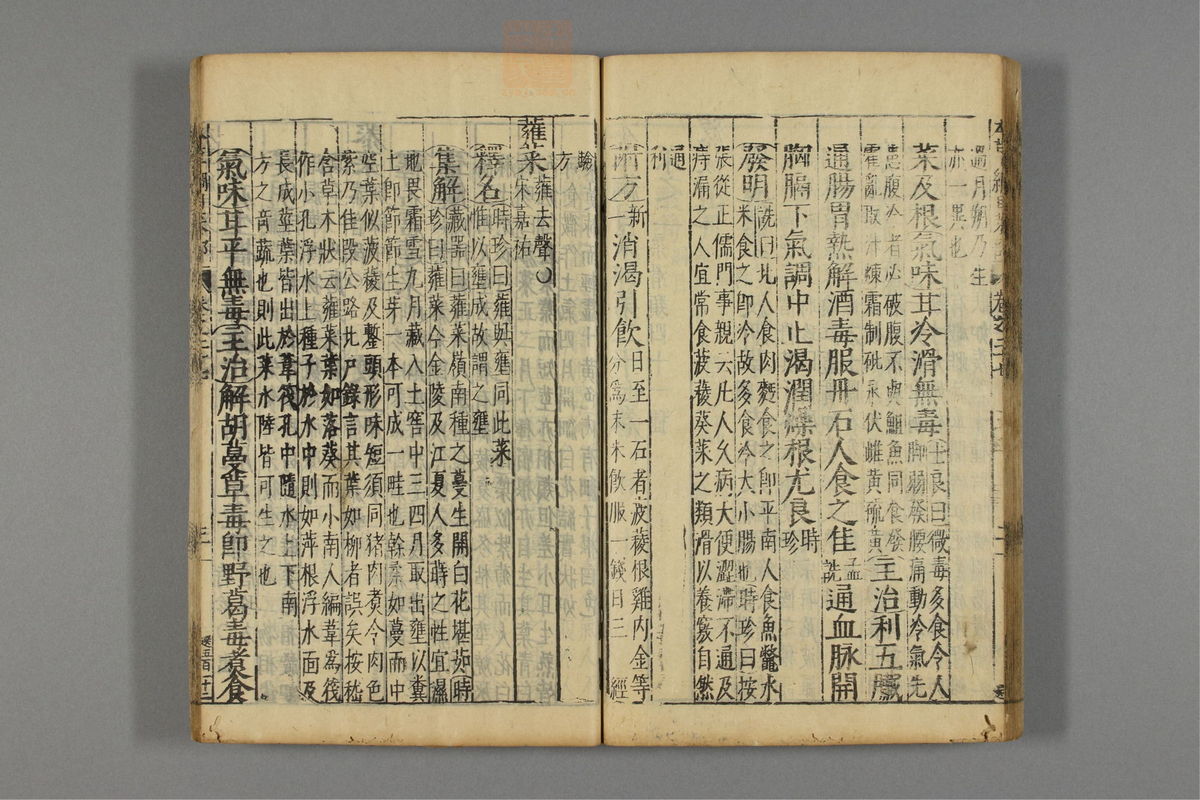 過月朔乃生
亦一異也
菜及根氣味甘冷滑無毒士良曰微毒多食令人
脚弱發腰痛動冷氣先
患腹冷者必破腹不與鱓魚同食發
霍亂取汁煉霜制砒汞伏雌黃硫黃主治利五臟
通腸胃熱解酒毒服丹石人食之佳孟詵通血脉開
胸膈下氣調中止渴潤燥根尤良時珍
發明詵曰北人食肉麪食之即平南人食魚鱉水
米食之即冷故多食冷大小腸也時珍曰按
張從正儒門事親云凡人久病大便澀滯不通及
痔漏之人宜常食菠薐葵菜之類滑以養竅自然
通利
附方新一消渴引飲日至一石者菠薐根雞内金等
分爲末米飲服一錢日三經
驗
方
蕹菜蕹去聲○
宋嘉祐
釋名時珍曰蕹與壅同此菜
惟以壅成故謂之壅
集解藏器曰蕹菜嶺南種之蔓生開白花堪茹時
珍曰蕹菜今金陵及江夏人多蒔之性宜濕
地畏霜雪九月藏入土窖中三四月取出壅以糞
土即節節生芽一本可成一畦也幹柔如蔓而中
空葉似菠薐及鏨頭形味短須同猪肉煑令肉色
紫乃佳段公路北戶錄言其葉如柳者誤矣按嵇
含草木狀云蕹菜葉如落葵而小南人編葦爲筏
作小孔浮水上種子於水中則如萍根浮水面及
長成莖葉皆出於葦筏孔中隨水上下南
方之奇蔬也則此菜水陸皆可生之也
氣味甘平無毒主治解胡蔓草毒即野葛毒煮食